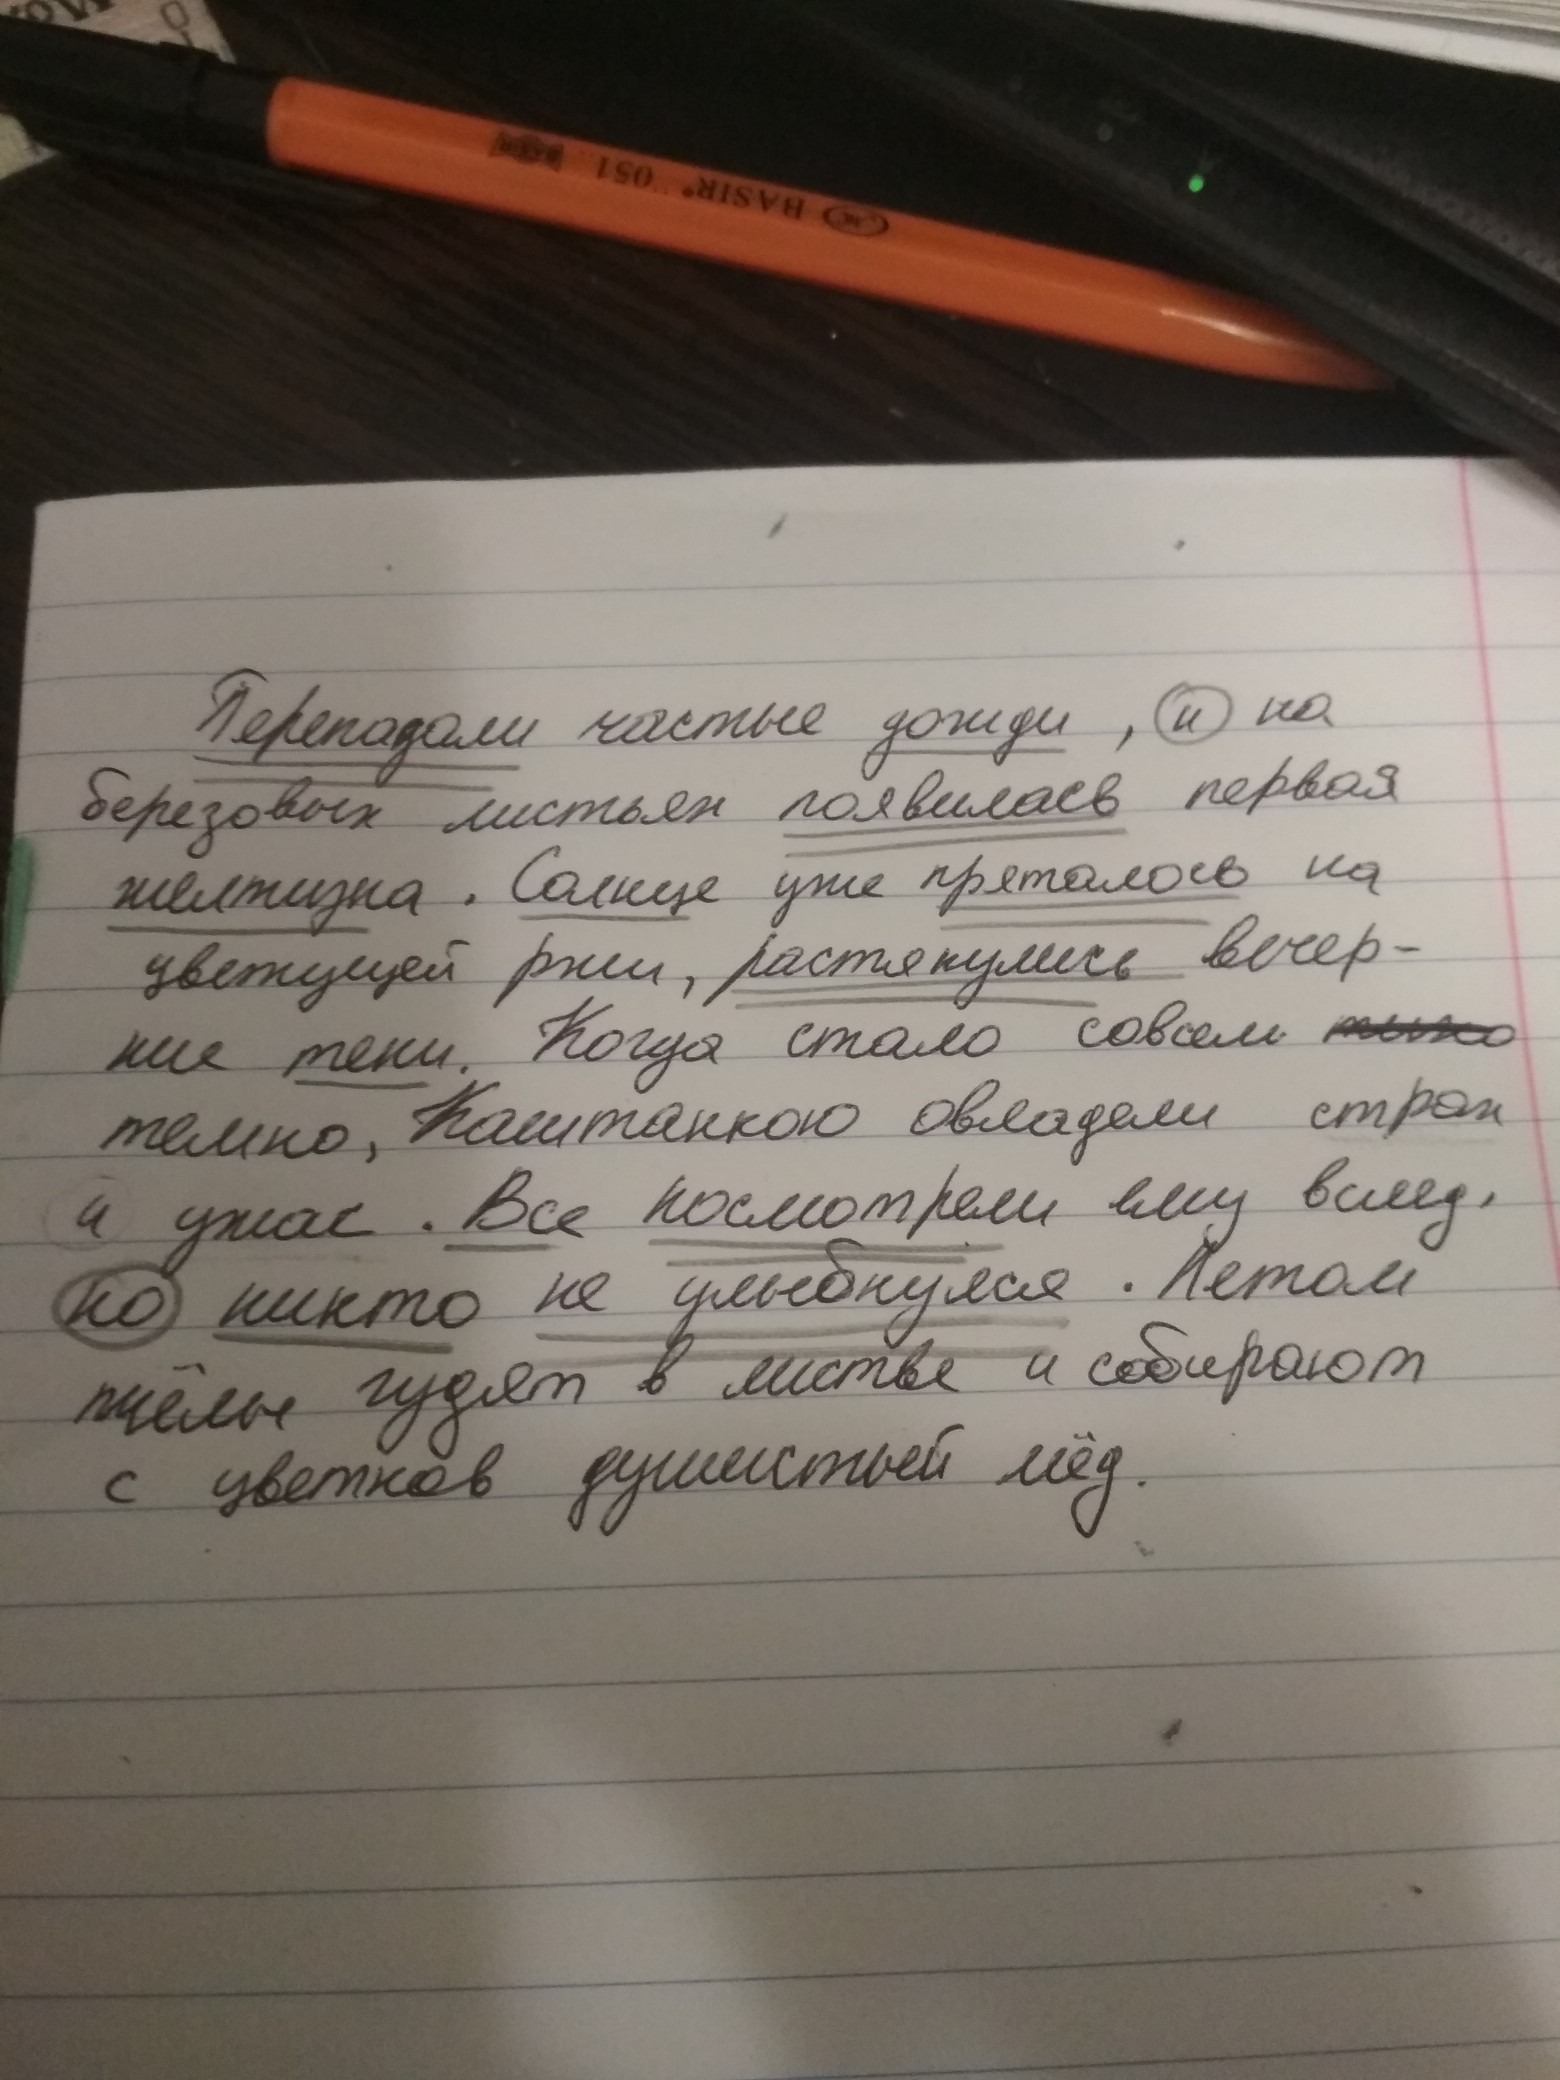 BASIR® 051
Перепадали частые дожди, и на
березовых листьях появилась первая
желтизна. Солнце уже пряталось на
цветущей ржи, растянулись вечер-
ние тени. Когда стало совсем
темно, Каштанкою овладели страх
и ужас. Все посмотрели ему вслед,
но никто не улыбнулся. Летом
пчёлы гудят в листве и собирают
с цветков душистый мёд.